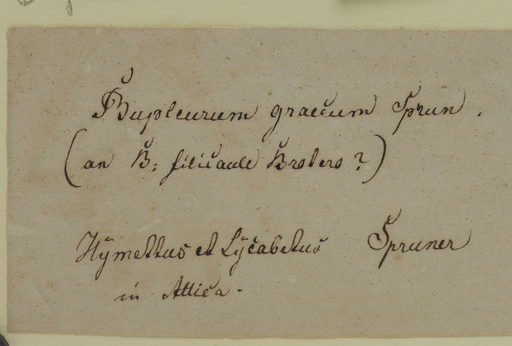 Bupleurum graecum Sprun.
(an B: filicaule Brotero?)
Hÿmettus et Lÿcabetus Spruner
in Attica.